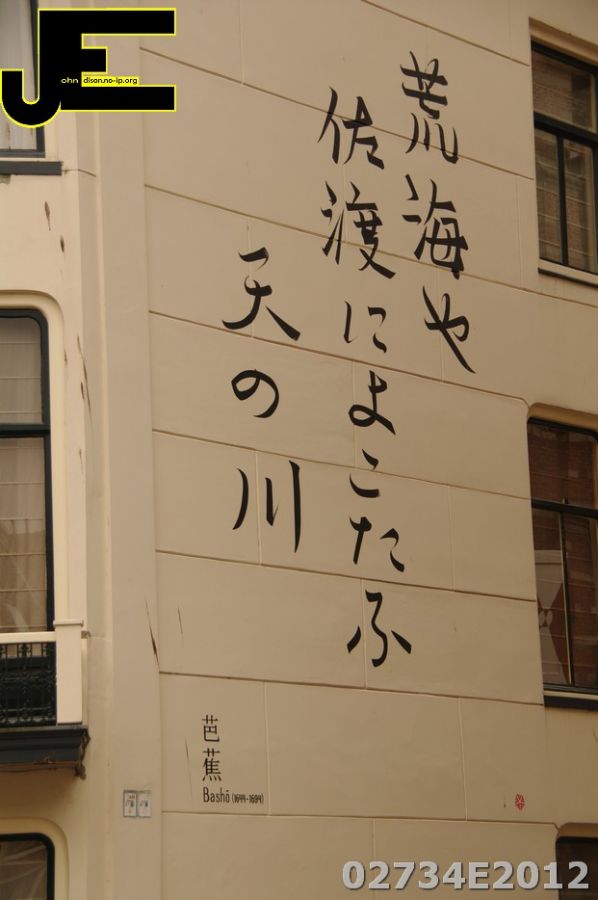 JE
ohn disan.no-ip.org
荒海や
佐渡によこたふ
天の川
芭蕉
Bashō (1644-1694)
02734E2012